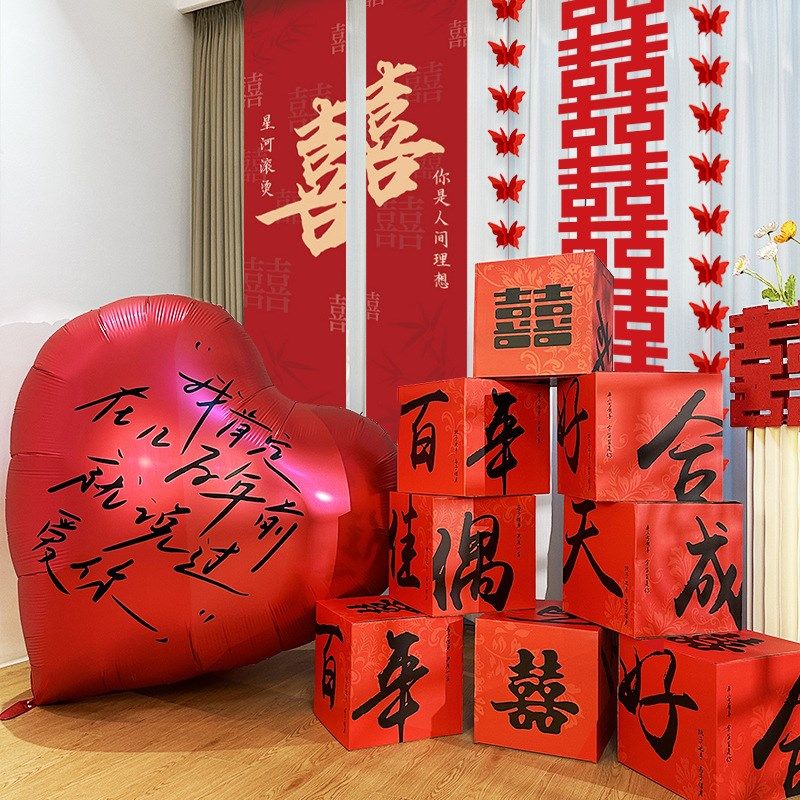 星河滚烫
囍
你是人间理想
囍
囍
"我肯定
在几百年前
就说过
爱你"
囍
百年
好合
佳偶
天成
百年
囍
好合